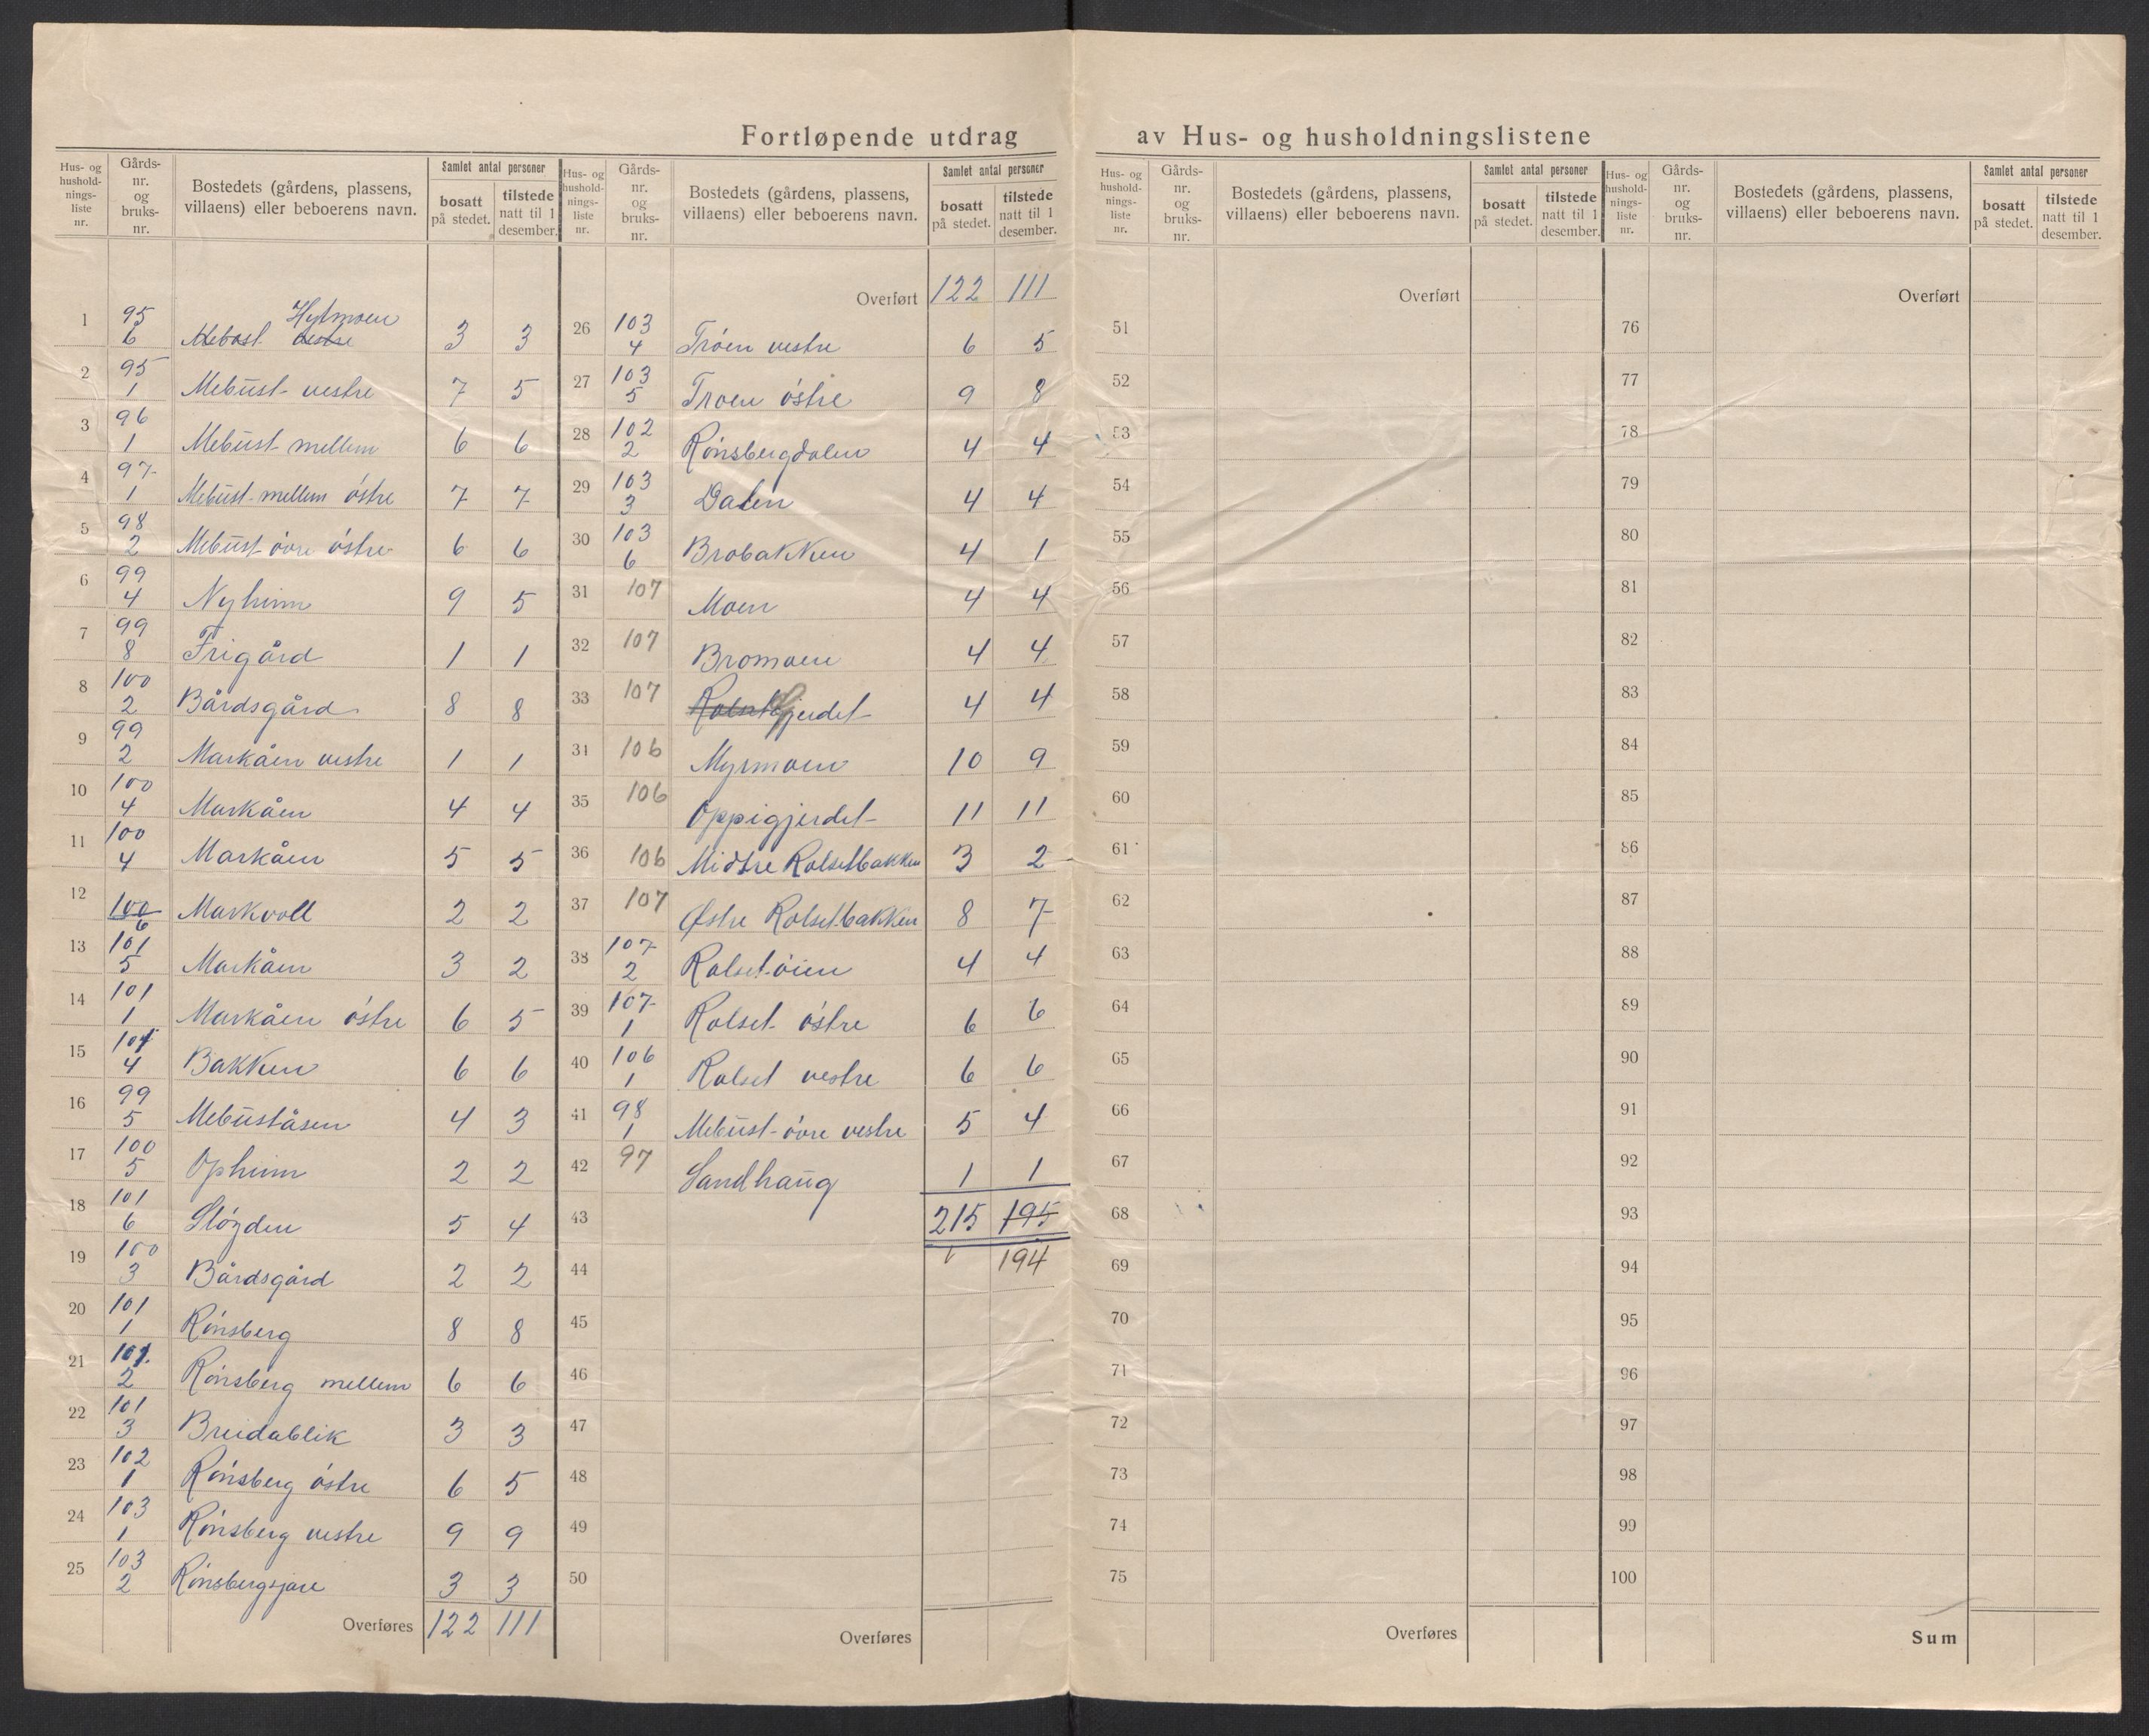 Fortløpende utdrag av Hus- og husholdningslistene
Hus- og hushold-nings-liste nr. Gårds-nr. og bruks-nr. Bostedets (gårdens, plassens, villaens) eller beboerens navn. Samlet antal personer bosatt på stedet. tilstede natt til 1 desember.
1 95 6 Mebost vestre Hylmoen 3 3
2 95 1 Mebust vestre 7 5
3 96 1 Mebust mellem 6 6
4 97 1 Mebust mellem östre 7 7
5 98 2 Mebust övre östre 6 6
6 99 4 Nyheim 9 5
7 99 8 Frigård 1 1
8 100 2 Bårdsgård 8 8
9 99 2 Markåen vestre 1 1
10 100 4 Markåen 4 4
11 100 4 Markåen 5 5
12 100 6 Markvoll 2 2
13 101 5 Markåen 3 2
14 101 1 Markåen östre 6 5
15 101 4 Bakken 6 6
16 99 5 Mebuståsen 4 3
17 100 5 Opheim 2 2
18 101 6 Slögden 5 4
19 100 3 Bårdsgård 2 2
20 101 1 Rönsberg 8 8
21 101 2 Rönsberg mellem 6 6
22 101 3 Breidablik 3 3
23 102 1 Rönsberg östre 6 5
24 103 1 Rönsberg vestre 9 9
25 103 2 Rönsbergsjare 3 3
Overføres 122 111
Hus- og hushold-nings-liste nr. Gårds-nr. og bruks-nr. Bostedets (gårdens, plassens, villaens) eller beboerens navn. Samlet antal personer bosatt på stedet. tilstede natt til 1 desember.
Overført 122 111
26 103 4 Tröen vestre 6 5
27 103 5 Troen östre 9 8
28 102 2 Rönsbergdalen 4 4
29 103 3 Dalen 4 4
30 103 6 Brobakken 4 1
31 107 Moen 4 4
32 107 Bromoen 4 4
33 107 Rolset Gjerdet 4 4
34 106 Myrmoen 10 9
35 106 Oppigjerdet 11 11
36 106 Midtre Rolsetbakken 3 2
37 107 Østre Rolsetbakken 8 7
38 107 2 Rolsetöien 4 4
39 107 1 Rolset östre 6 6
40 106 1 Rolset vestre 6 6
41 98 1 Mebust övre vestre 5 4
42 97 Sandhaug 1 1
43 215 195
44 194
45
46
47
48
49
50
Overføres
Hus- og hushold-nings-liste nr. Gårds-nr. og bruks-nr. Bostedets (gårdens, plassens, villaens) eller beboerens navn. Samlet antal personer bosatt på stedet. tilstede natt til 1 desember.
Overført
51
52
53
54
55
56
57
58
59
60
61
62
63
64
65
66
67
68
69
70
71
72
73
74
75
Overføres
Hus- og hushold-nings-liste nr. Gårds-nr. og bruks-nr. Bostedets (gårdens, plassens, villaens) eller beboerens navn. Samlet antal personer bosatt på stedet. tilstede natt til 1 desember.
Overført
76
77
78
79
80
81
82
83
84
85
86
87
88
89
90
91
92
93
94
95
96
97
98
99
100
Sum